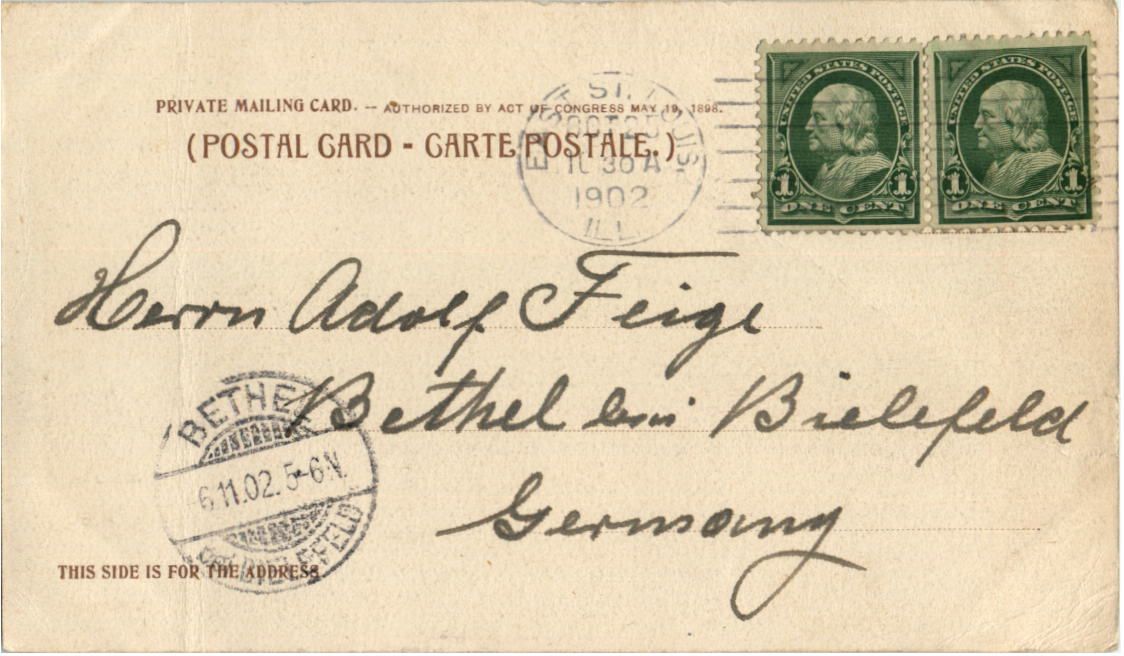 PRIVATE MAILING CARD. -- AUTHORIZED BY ACT OF CONGRESS MAY 19, 1898.
(POSTAL CARD - CARTE POSTALE.)
EAST ST. LOUIS
OCT 25
11 30 A
1902
ILL.
UNITED STATES POSTAGE
1 1
ONE CENT
UNITED STATES POSTAGE
1 1
ONE CENT
Herrn Adolf Feige
Bethel bei Bielefeld
Germany
BETHEL
6.11.02. 5-6N.
BIELEFELD
THIS SIDE IS FOR THE ADDRESS